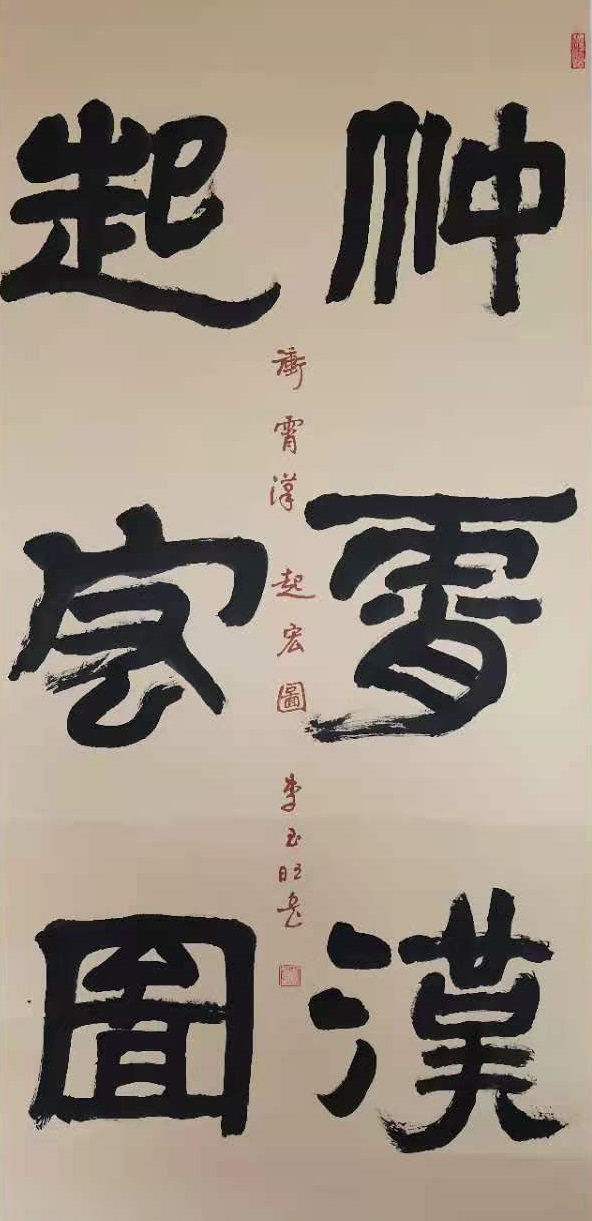 沖霄漢
起宏圖
衝霄漢 起宏圖 李玉旺書